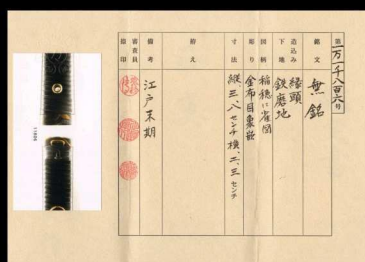 第一万一千八百六号
銘文 無銘
造込み 縁頭
下地 鉄磨地
図柄 稲穂に雀図
彫り 金布目象嵌
寸法 縦三、八センチ 横二、三センチ
拵え
備考 江戸末期
審査員
割印